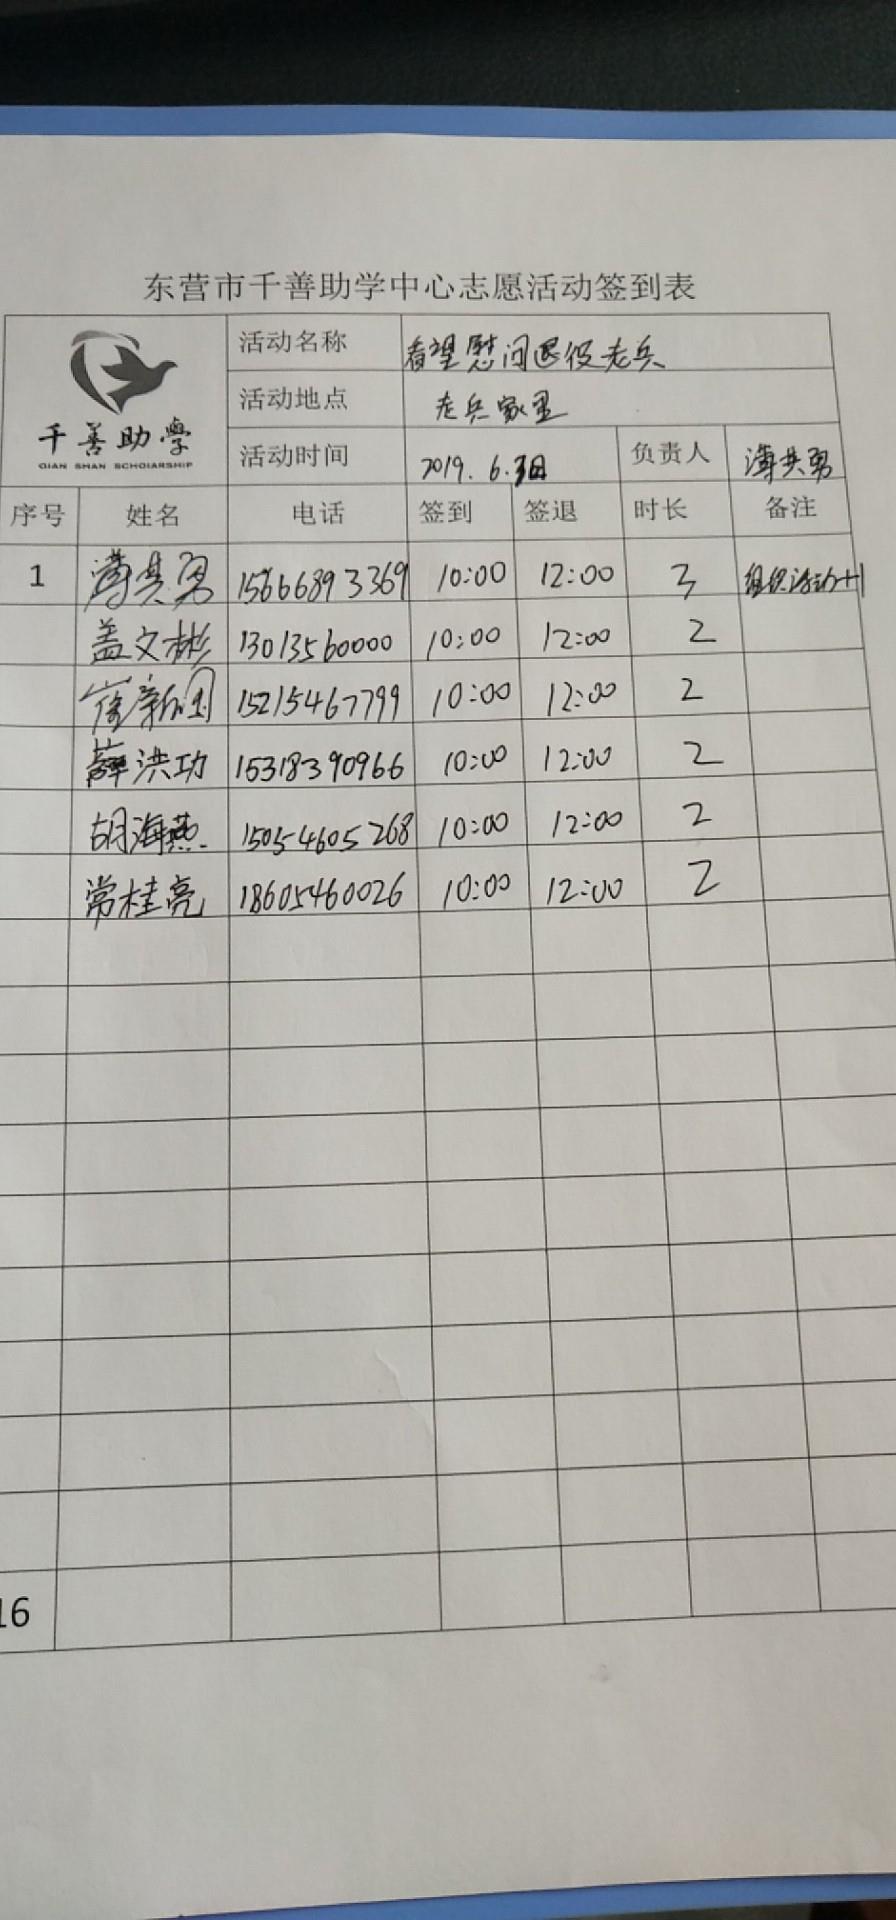 东营市千善助学中心志愿活动签到表
千善助學
QIAN SHAN SCHOLARSHIP
活动名称 看望慰问退役老兵
活动地点 老兵家里
活动时间 2019.6.3日 负责人 薄其勇
序号 姓名 电话 签到 签退 时长 备注
1 薄其勇 15666893369 10:00 12:00 3 组织活动+1
盖文彬 13013560000 10:00 12:00 2
崔新国 15215467799 10:00 12:00 2
薛洪功 15318390966 10:00 12:00 2
胡海燕 15054605268 10:00 12:00 2
常桂亮 18605460026 10:00 12:00 2
16